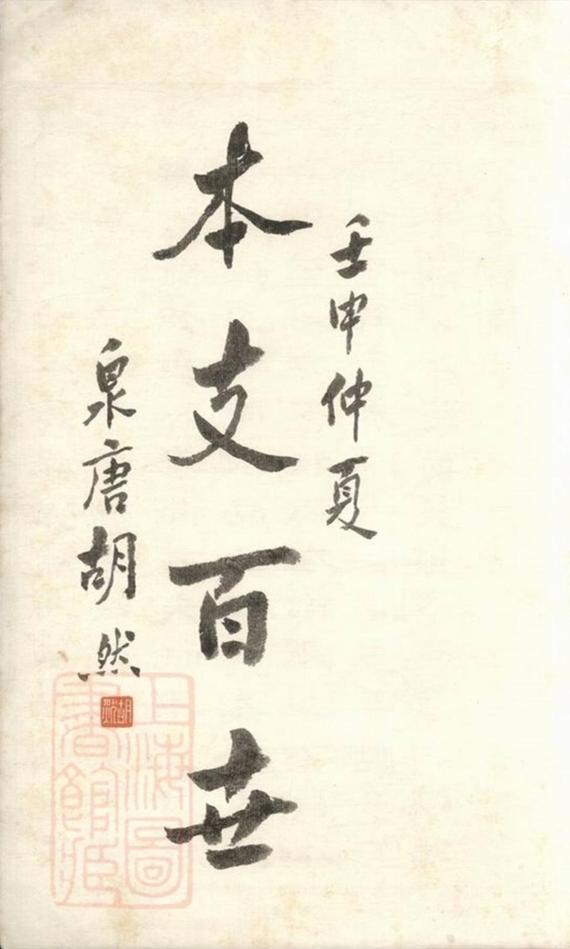 壬申仲夏
本支百世
泉唐胡然
胡然
上海圖
書館藏